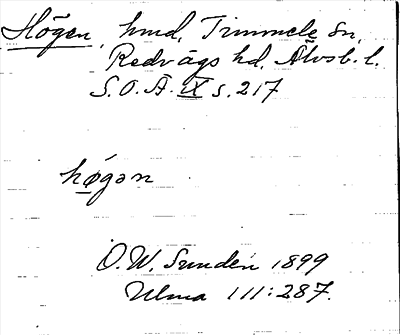 Högen, hmd, Timmele sn,
Redvägs hd, Älvsb. l.
S. O. Ä. IX s. 217
høgən
O. W. Sundén 1899
Ulma 111:287.